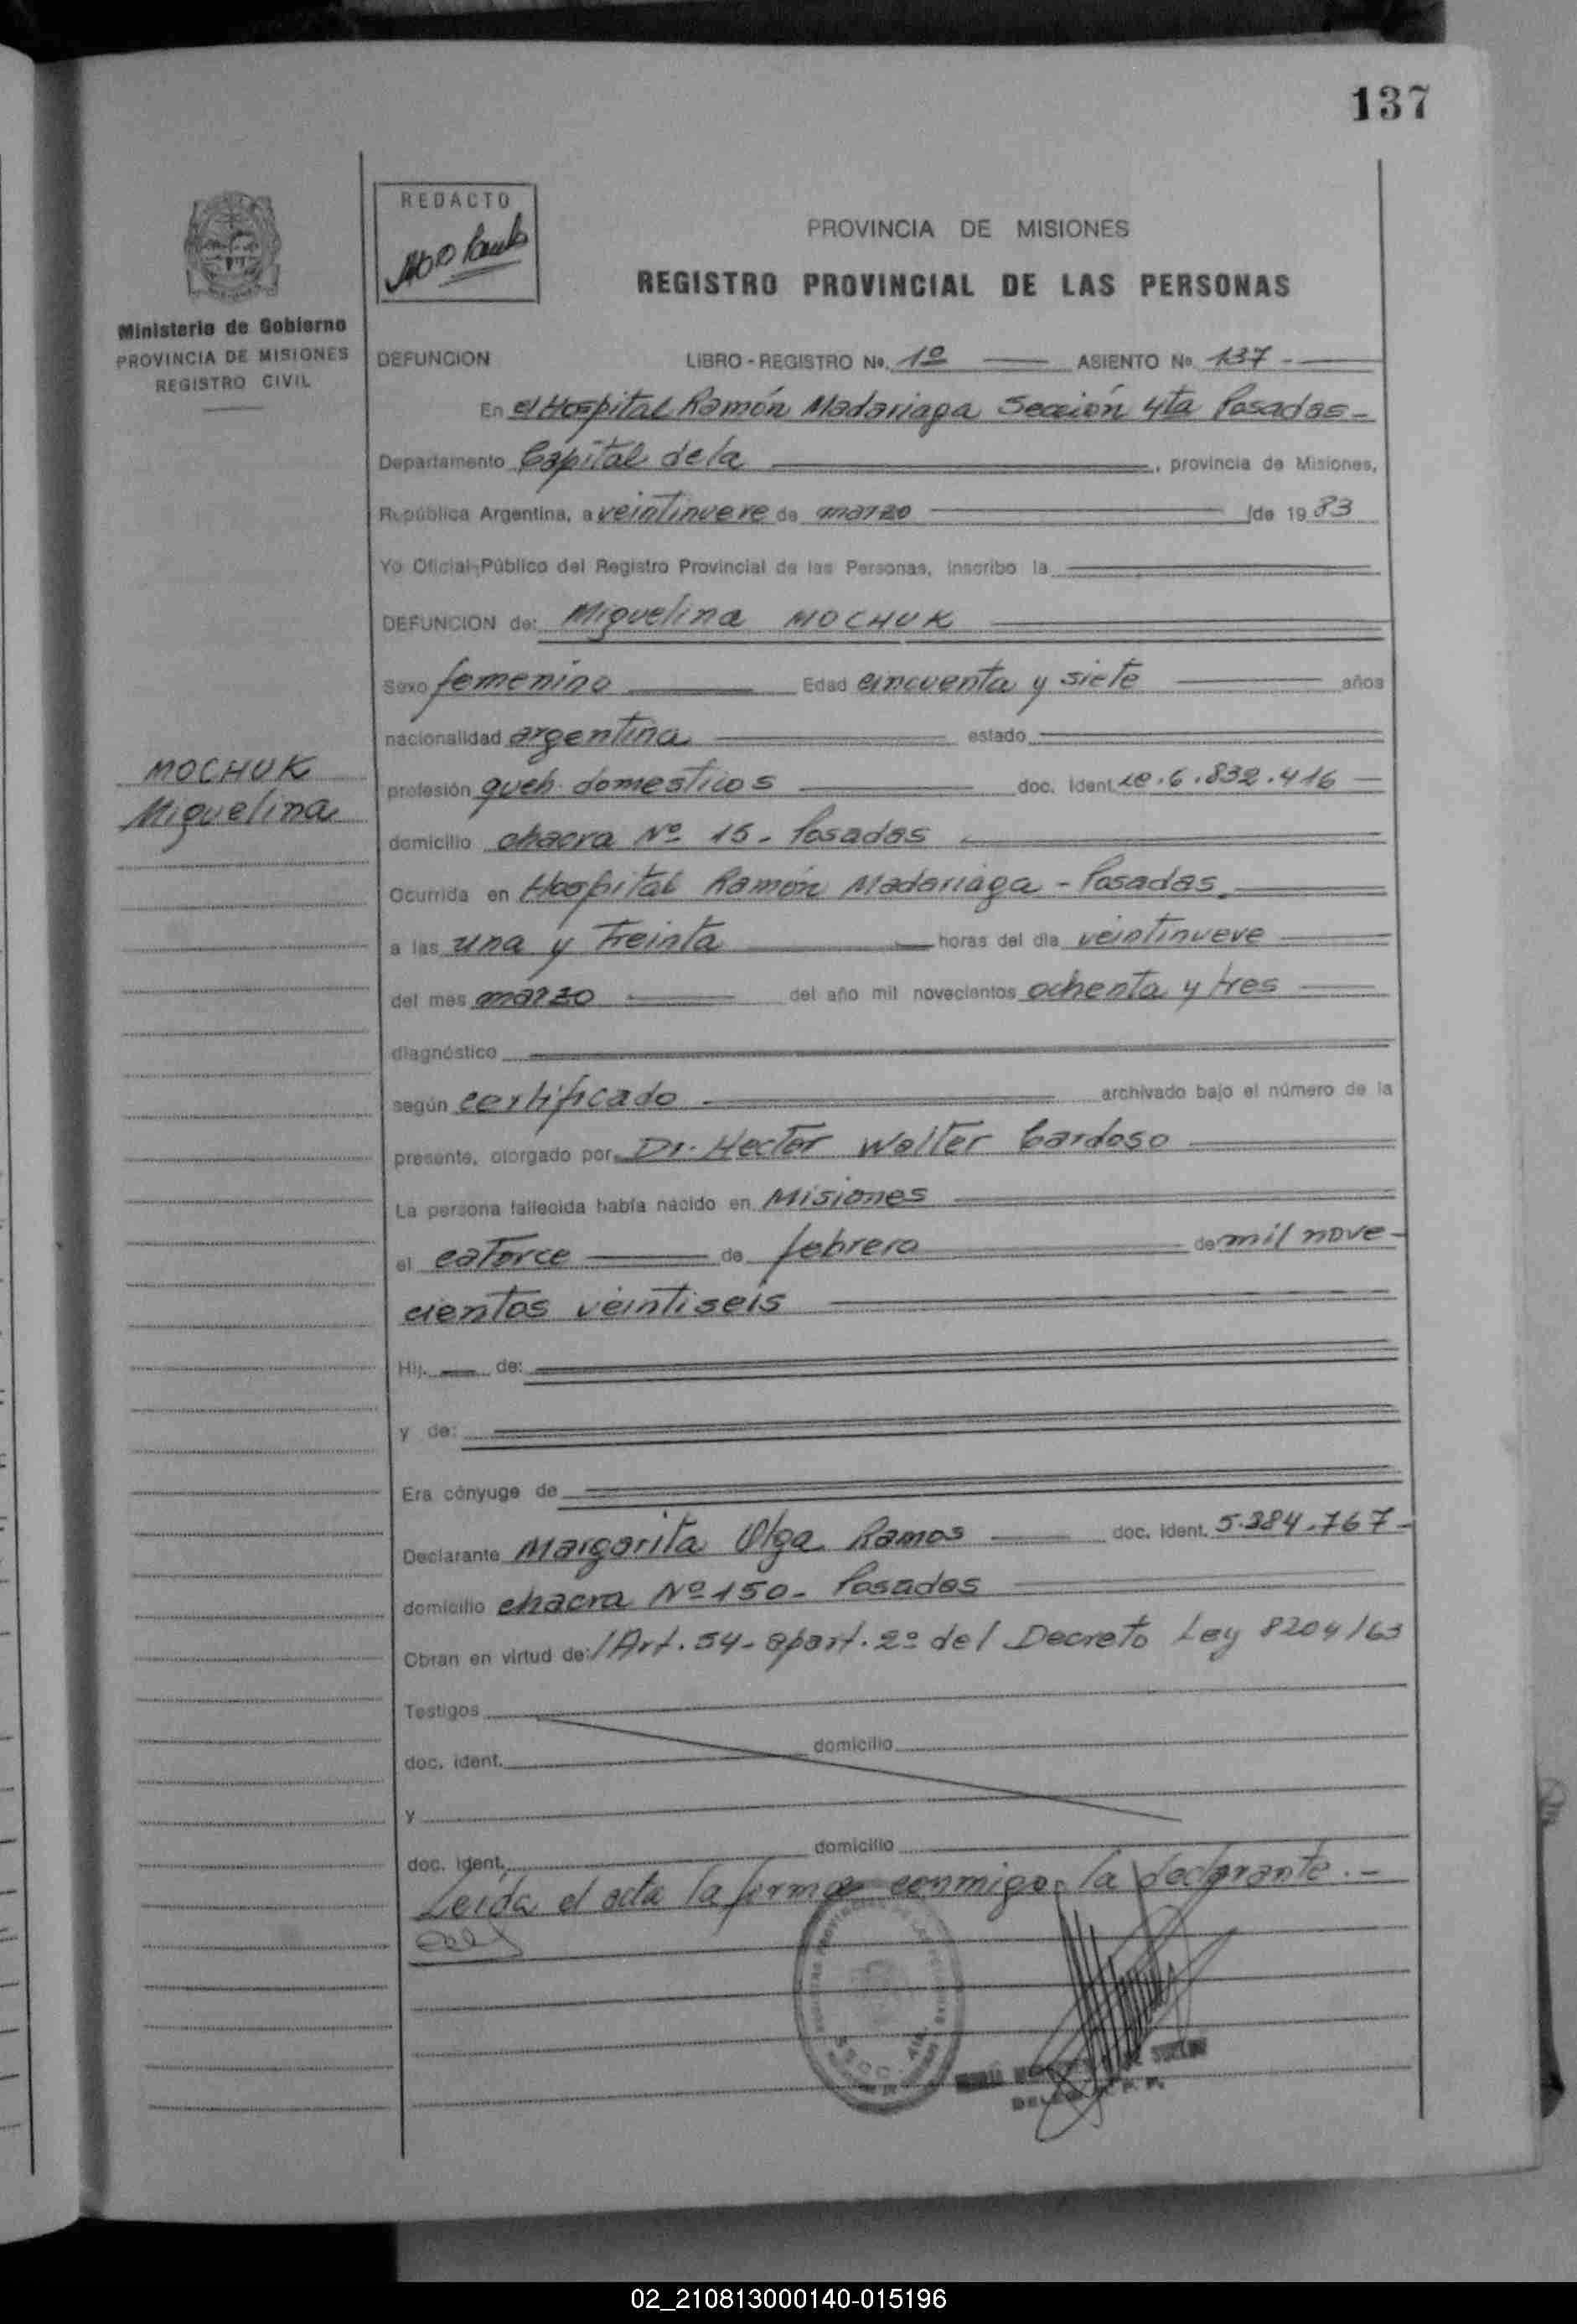 137
REDACTO
PROVINCIA DE MISIONES
REGISTRO PROVINCIAL DE LAS PERSONAS
Ministerio de Gobierno
PROVINCIA DE MISIONES
REGISTRO CIVIL
DEFUNCION LIBRO - REGISTRO No. 1º ASIENTO No. 137 -
En el Hospital Ramón Madariaga Sección 4ta Posadas -
Departamento Capital de la , provincia de Misiones,
República Argentina, a veintinueve de marzo de 19 83
Yo Oficial Público del Registro Provincial de las Personas, inscribo la
DEFUNCION de: Miguelina MOCHUK
Sexo femenino Edad cincuenta y siete años
nacionalidad argentina estado
MOCHUK
Miguelina
profesión queh. domesticos doc. Ident. LC. 6.832.416
domicilio chacra Nº 15 - Posadas
Ocurrida en Hospital Ramón Madariaga - Posadas.
a las una y treinta horas del dia veintinueve
del mes marzo del año mil novecientos ochenta y tres
diagnóstico
según certificado archivado bajo el número de la
presente, otorgado por Dr. Hector Walter Cardoso
La persona fallecida había nacido en Misiones
el catorce de febrero de mil nove -
cientos veintiseis
Hij. de:
y de:
Era cónyuge de
Declarante Margarita Olga Ramos doc. ident. 5.384.767 -
domicilio chacra Nº 150 - Posadas
Obran en virtud de: /Art. 54 - apart. 2º del Decreto Ley 8204/63
Testigos
doc. ident. domicilio
y
doc. ident. domicilio
Leida el acta la firma conmigo la declarante . -
02_210813000140-015196